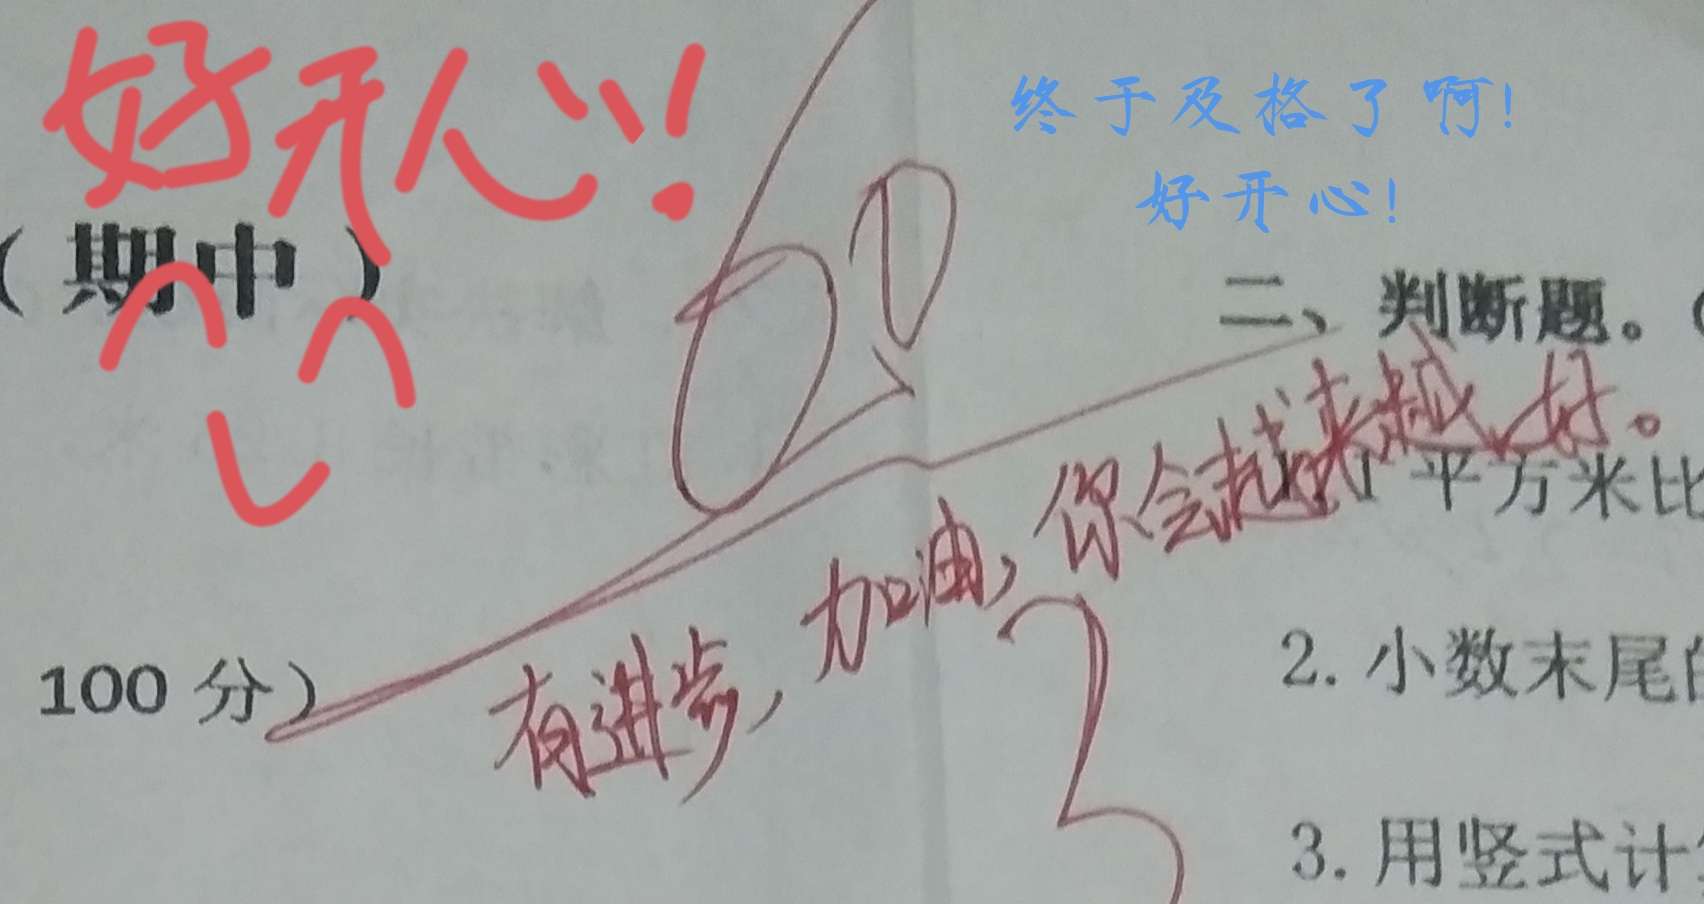 好开心!
终于及格了啊!
好开心!
(期中)
60
二、判断题。(
有进步,加油,你会越来越好。
平方米比
100 分)
2. 小数末尾的
3
3. 用竖式计